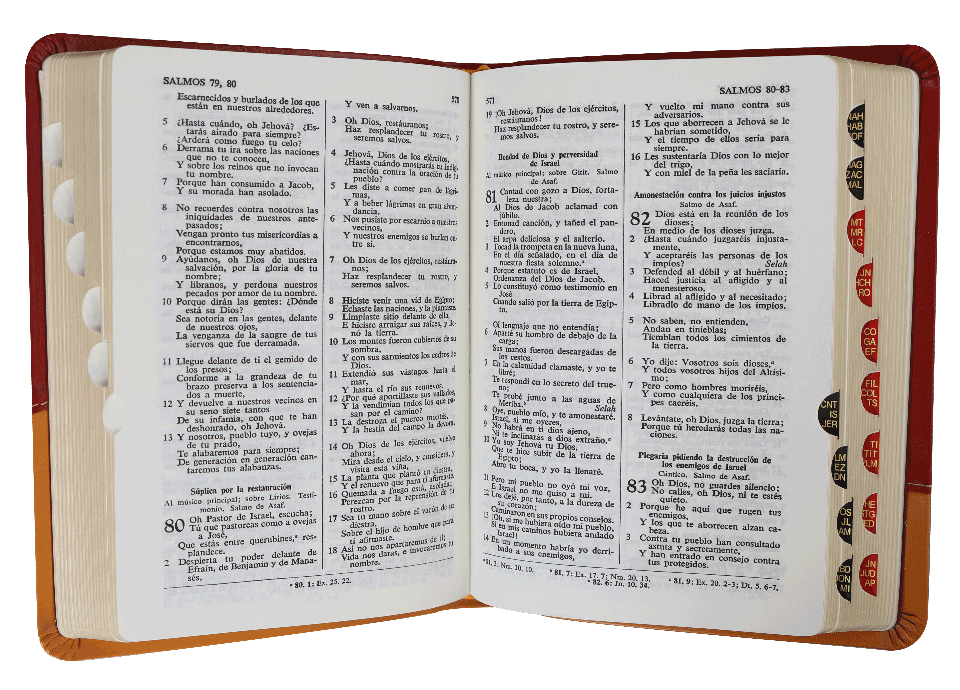 SALMOS 79, 80
570
Escarnecidos y burlados de los que
están en nuestros alrededores.
5 ¿Hasta cuándo, oh Jehová? ¿Es-
tarás airado para siempre?
¿Arderá como fuego tu celo?
6 Derrama tu ira sobre las naciones
que no te conocen,
Y sobre los reinos que no invocan
tu nombre.
7 Porque han consumido a Jacob,
Y su morada han asolado.
8 No recuerdes contra nosotros las
iniquidades de nuestros ante-
pasados;
Vengan pronto tus misericordias a
encontrarnos,
Porque estamos muy abatidos.
9 Ayúdanos, oh Dios de nuestra
salvación, por la gloria de tu
nombre;
Y líbranos, y perdona nuestros
pecados por amor de tu nombre.
10 Porque dirán las gentes: ¿Dónde
está su Dios?
Sea notoria en las gentes, delante
de nuestros ojos,
La venganza de la sangre de tus
siervos que fue derramada.
11 Llegue delante de ti el gemido de
los presos;
Conforme a la grandeza de tu
brazo preserva a los sentencia-
dos a muerte,
12 Y devuelve a nuestros vecinos en
su seno siete tantos
De su infamia, con que te han
deshonrado, oh Jehová.
13 Y nosotros, pueblo tuyo, y ovejas
de tu prado,
Te alabaremos para siempre;
De generación en generación can-
taremos tus alabanzas.
Súplica por la restauración
Al músico principal; sobre Lirios. Testi-
monio. Salmo de Asaf.
80 Oh Pastor de Israel, escucha;
Tú que pastoreas como a ovejas
a José,
Que estás entre querubines,ª res-
plandece.
2 Despierta tu poder delante de
Efraín, de Benjamín y de Mana-
sés,
Y ven a salvarnos.
3 Oh Dios, restáuranos;
Haz resplandecer tu rostro, y
seremos salvos.
4 Jehová, Dios de los ejércitos,
¿Hasta cuándo mostrarás tu indig-
nación contra la oración de tu
pueblo?
5 Les diste a comer pan de lágri-
mas,
Y a beber lágrimas en gran abun-
dancia.
6 Nos pusiste por escarnio a nuestros
vecinos,
Y nuestros enemigos se burlan en-
tre sí.
7 Oh Dios de los ejércitos, restáura-
nos;
Haz resplandecer tu rostro, y
seremos salvos.
8 Hiciste venir una vid de Egipto;
Echaste las naciones, y la plantaste.
9 Limpiaste sitio delante de ella,
E hiciste arraigar sus raíces, y lle-
nó la tierra.
10 Los montes fueron cubiertos de su
sombra,
Y con sus sarmientos los cedros de
Dios.
11 Extendió sus vástagos hasta el
mar,
Y hasta el río sus renuevos.
12 ¿Por qué aportillaste sus vallados,
Y la vendimian todos los que pa-
san por el camino?
13 La destroza el puerco montés,
Y la bestia del campo la devora.
14 Oh Dios de los ejércitos, vuelve
ahora;
Mira desde el cielo, y considera, y
visita esta viña,
15 La planta que plantó tu diestra,
Y el renuevo que para ti afirmaste.
16 Quemada a fuego está, asolada;
Perezcan por la reprensión de tu
rostro.
17 Sea tu mano sobre el varón de tu
diestra,
Sobre el hijo de hombre que para
ti afirmaste.
18 Así no nos apartaremos de ti;
Vida nos darás, e invocaremos tu
nombre.
ª 80. 1: Ex. 25. 22.
571
SALMOS 80-83
19 ¡Oh Jehová, Dios de los ejércitos,
restáuranos!
Haz resplandecer tu rostro, y sere-
mos salvos.
Bondad de Dios y perversidad
de Israel
Al músico principal; sobre Gitit. Salmo
de Asaf.
81 Cantad con gozo a Dios, forta-
leza nuestra;
Al Dios de Jacob aclamad con
júbilo.
2 Entonad canción, y tañed el pan-
dero,
El arpa deliciosa y el salterio.
3 Tocad la trompeta en la nueva luna,
En el día señalado, en el día de
nuestra fiesta solemne.ª
4 Porque estatuto es de Israel,
Ordenanza del Dios de Jacob.
5 Lo constituyó como testimonio en
José
Cuando salió por la tierra de Egip-
to.
Oí lenguaje que no entendía;
6 Aparté su hombro de debajo de la
carga;
Sus manos fueron descargadas de
los cestos.
7 En la calamidad clamaste, y yo te
libré;
Te respondí en lo secreto del true-
no;
Te probé junto a las aguas de
Meriba.ᵇ Selah
8 Oye, pueblo mío, y te amonestaré.
Israel, si me oyeres,
9 No habrá en ti dios ajeno,
Ni te inclinarás a dios extraño.ᶜ
10 Yo soy Jehová tu Dios,
Que te hice subir de la tierra de
Egipto;
Abre tu boca, y yo la llenaré.
11 Pero mi pueblo no oyó mi voz,
E Israel no me quiso a mí.
12 Los dejé, por tanto, a la dureza de
su corazón;
Caminaron en sus propios consejos.
13 ¡Oh, si me hubiera oído mi pueblo,
Si en mis caminos hubiera andado
Israel!
14 En un momento habría yo derri-
bado a sus enemigos,
Y vuelto mi mano contra sus
adversarios.
15 Los que aborrecen a Jehová se le
habrían sometido,
Y el tiempo de ellos sería para
siempre.
16 Les sustentaría Dios con lo mejor
del trigo,
Y con miel de la peña les saciaría.
Amonestación contra los juicios injustos
Salmo de Asaf.
82 Dios está en la reunión de los
dioses;
En medio de los dioses juzga.
2 ¿Hasta cuándo juzgaréis injusta-
mente,
Y aceptaréis las personas de los
impíos? Selah
3 Defended al débil y al huérfano;
Haced justicia al afligido y al
menesteroso.
4 Librad al afligido y al necesitado;
Libradlo de mano de los impíos.
5 No saben, no entienden,
Andan en tinieblas;
Tiemblan todos los cimientos de
la tierra.
6 Yo dije: Vosotros sois dioses,ᵈ
Y todos vosotros hijos del Altísi-
mo;
7 Pero como hombres moriréis,
Y como cualquiera de los prínci-
pes caeréis.
8 Levántate, oh Dios, juzga la tierra;
Porque tú heredarás todas las na-
ciones.
Plegaria pidiendo la destrucción de
los enemigos de Israel
Cántico. Salmo de Asaf.
83 Oh Dios, no guardes silencio;
No calles, oh Dios, ni te estés
quieto.
2 Porque he aquí que rugen tus
enemigos,
Y los que te aborrecen alzan ca-
beza.
3 Contra tu pueblo han consultado
astuta y secretamente,
Y han entrado en consejo contra
tus protegidos.
ª 81. 3: Nm. 10. 10. ᵇ 81. 7: Ex. 17. 7; Nm. 20. 13. ᶜ 81. 9: Ex. 20. 2-3; Dt. 5. 6-7.
ᵈ 82. 6: Jn. 10. 34.
NAH
HAB
SOF
HAG
ZAC
MAL
MT
MR
LC
JN
HCH
RO
CO
GA
EF
FIL
COL
TS
CNT
IS
JER
TI
TIT
FLM
LM
EZ
DN
HE
STG
PED
OS
JL
AM
JN
JUD
AP